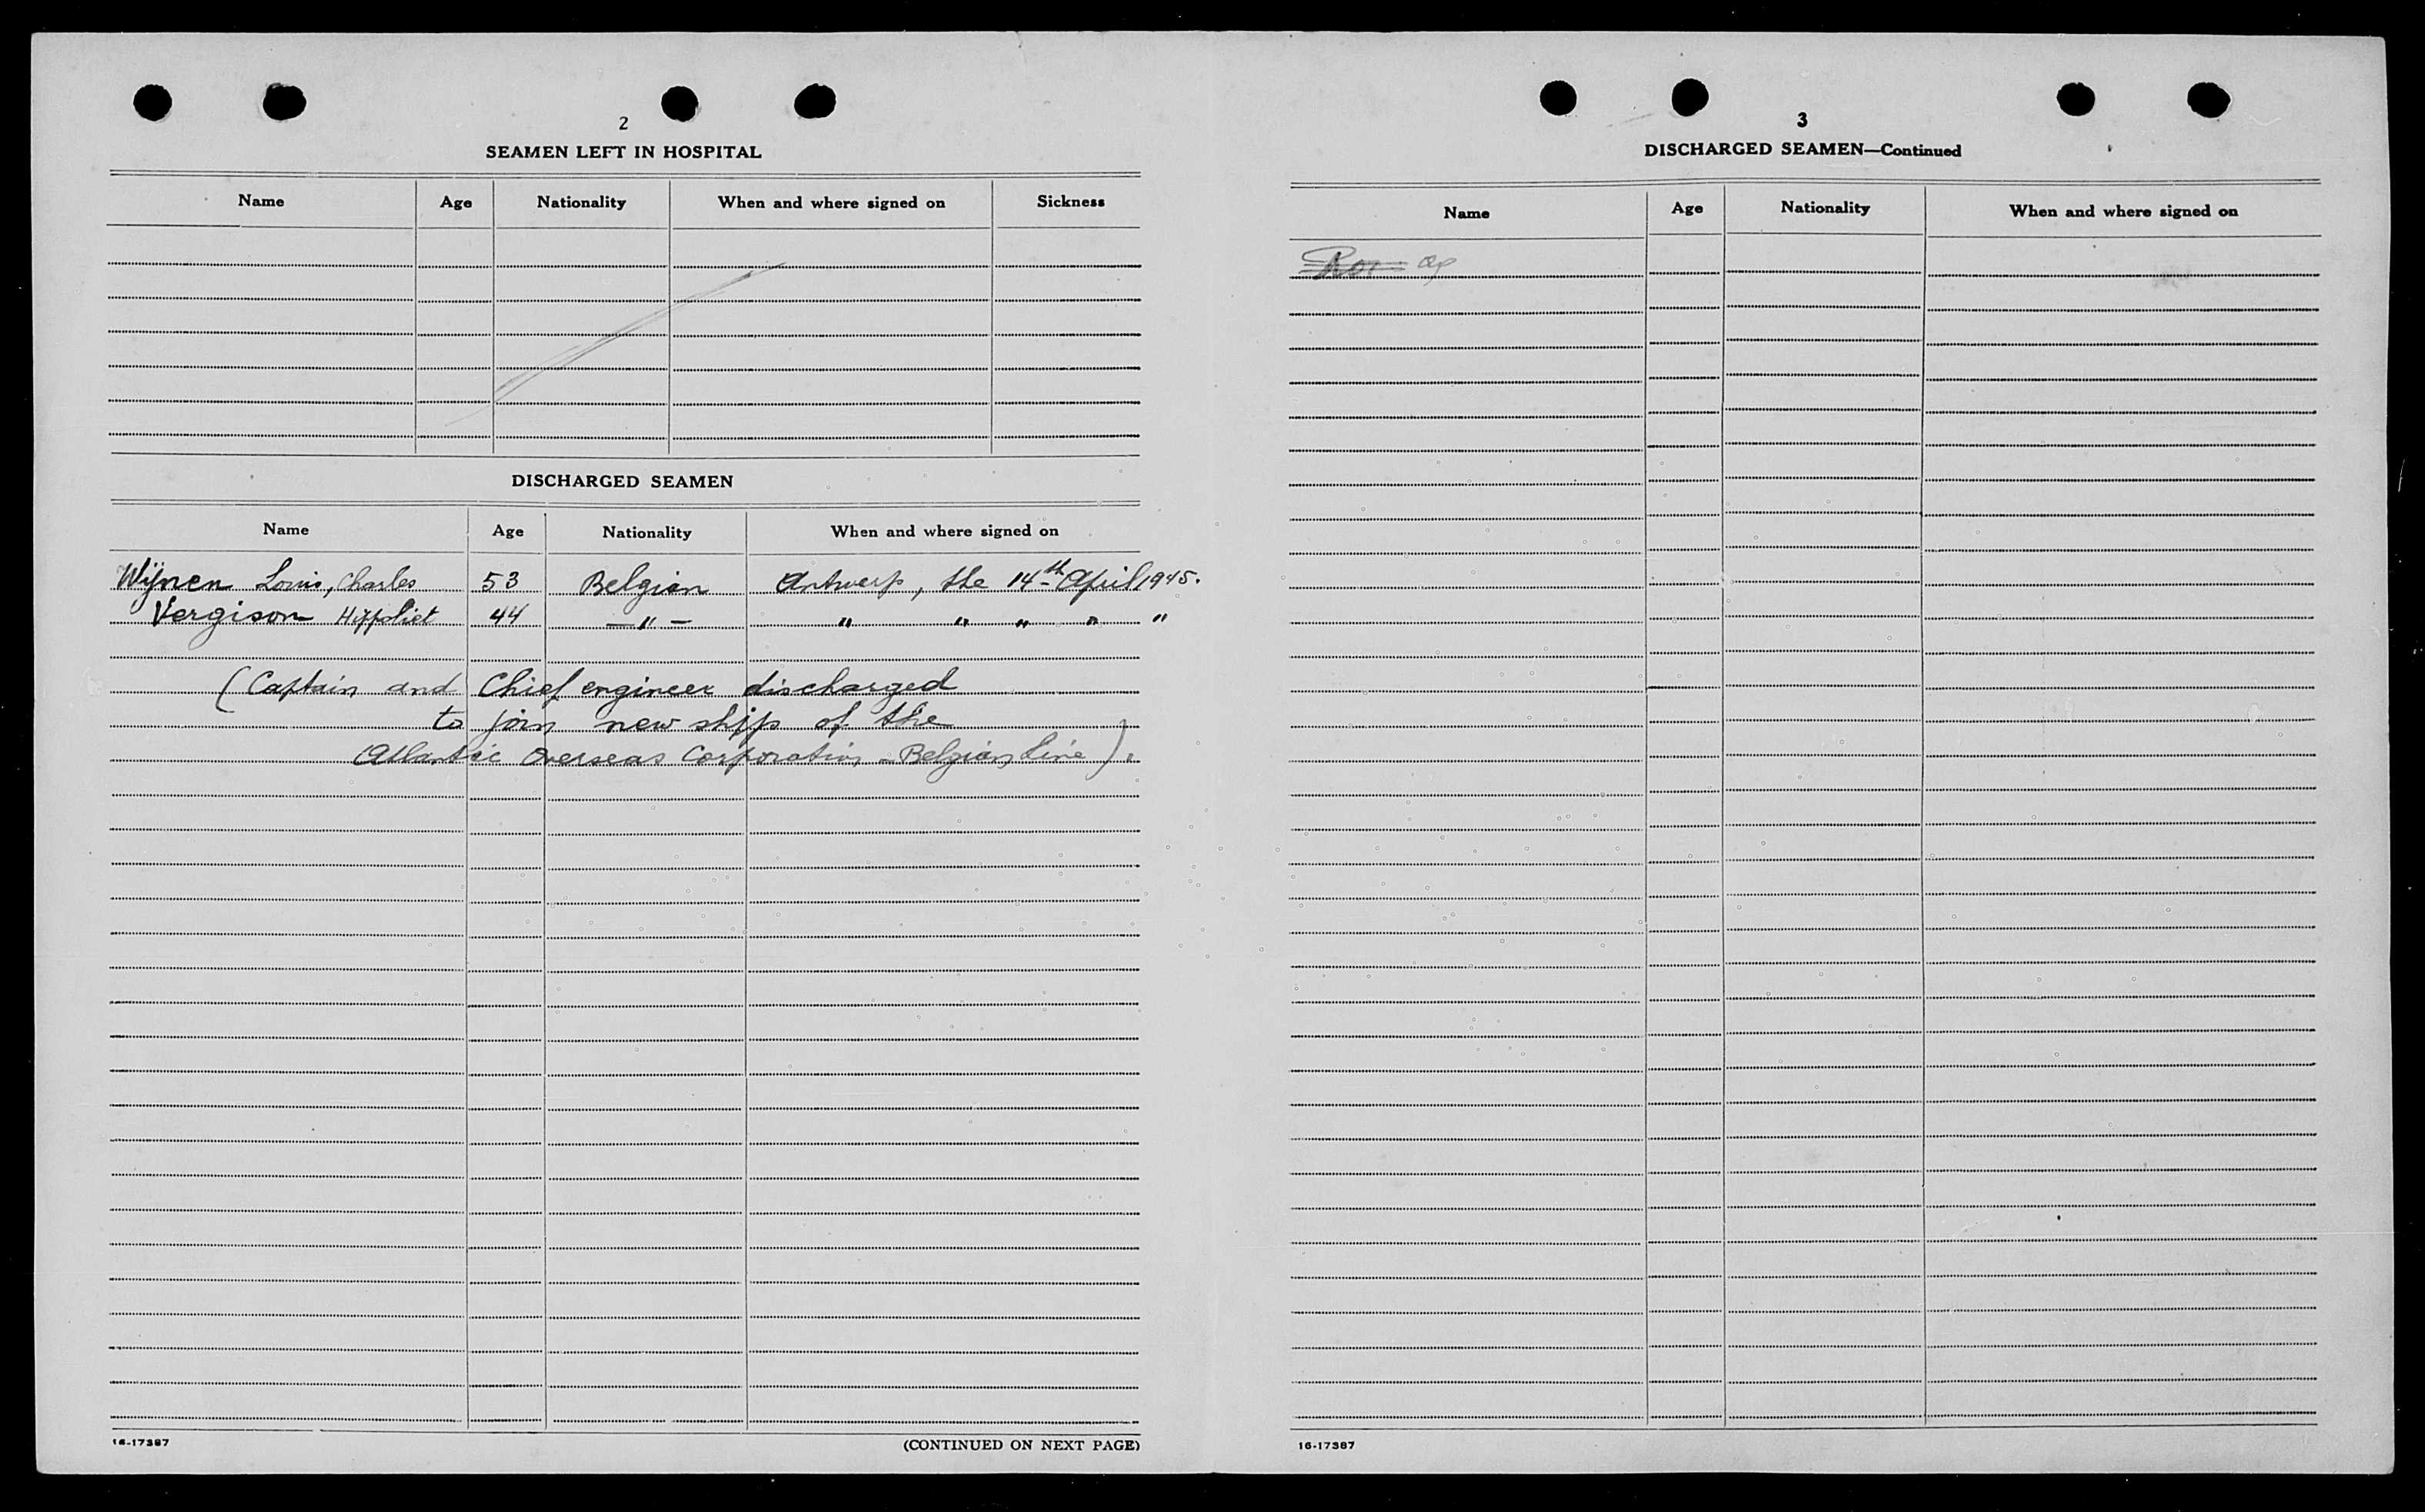 2
SEAMEN LEFT IN HOSPITAL
Name Age Nationality When and where signed on Sickness
DISCHARGED SEAMEN
Name Age Nationality When and where signed on
Wijnen Louis, Charles 53 Belgian Antwerp, the 14th April 1945.
Vergison Hippoliet 44 —"— " " " " "
(Captain and Chief engineer discharged
to join new ships of the
Atlantic Overseas Corporation - Belgian Line).
16-17387
(CONTINUED ON NEXT PAGE)
3
DISCHARGED SEAMEN—Continued
Name Age Nationality When and where signed on
16-17387